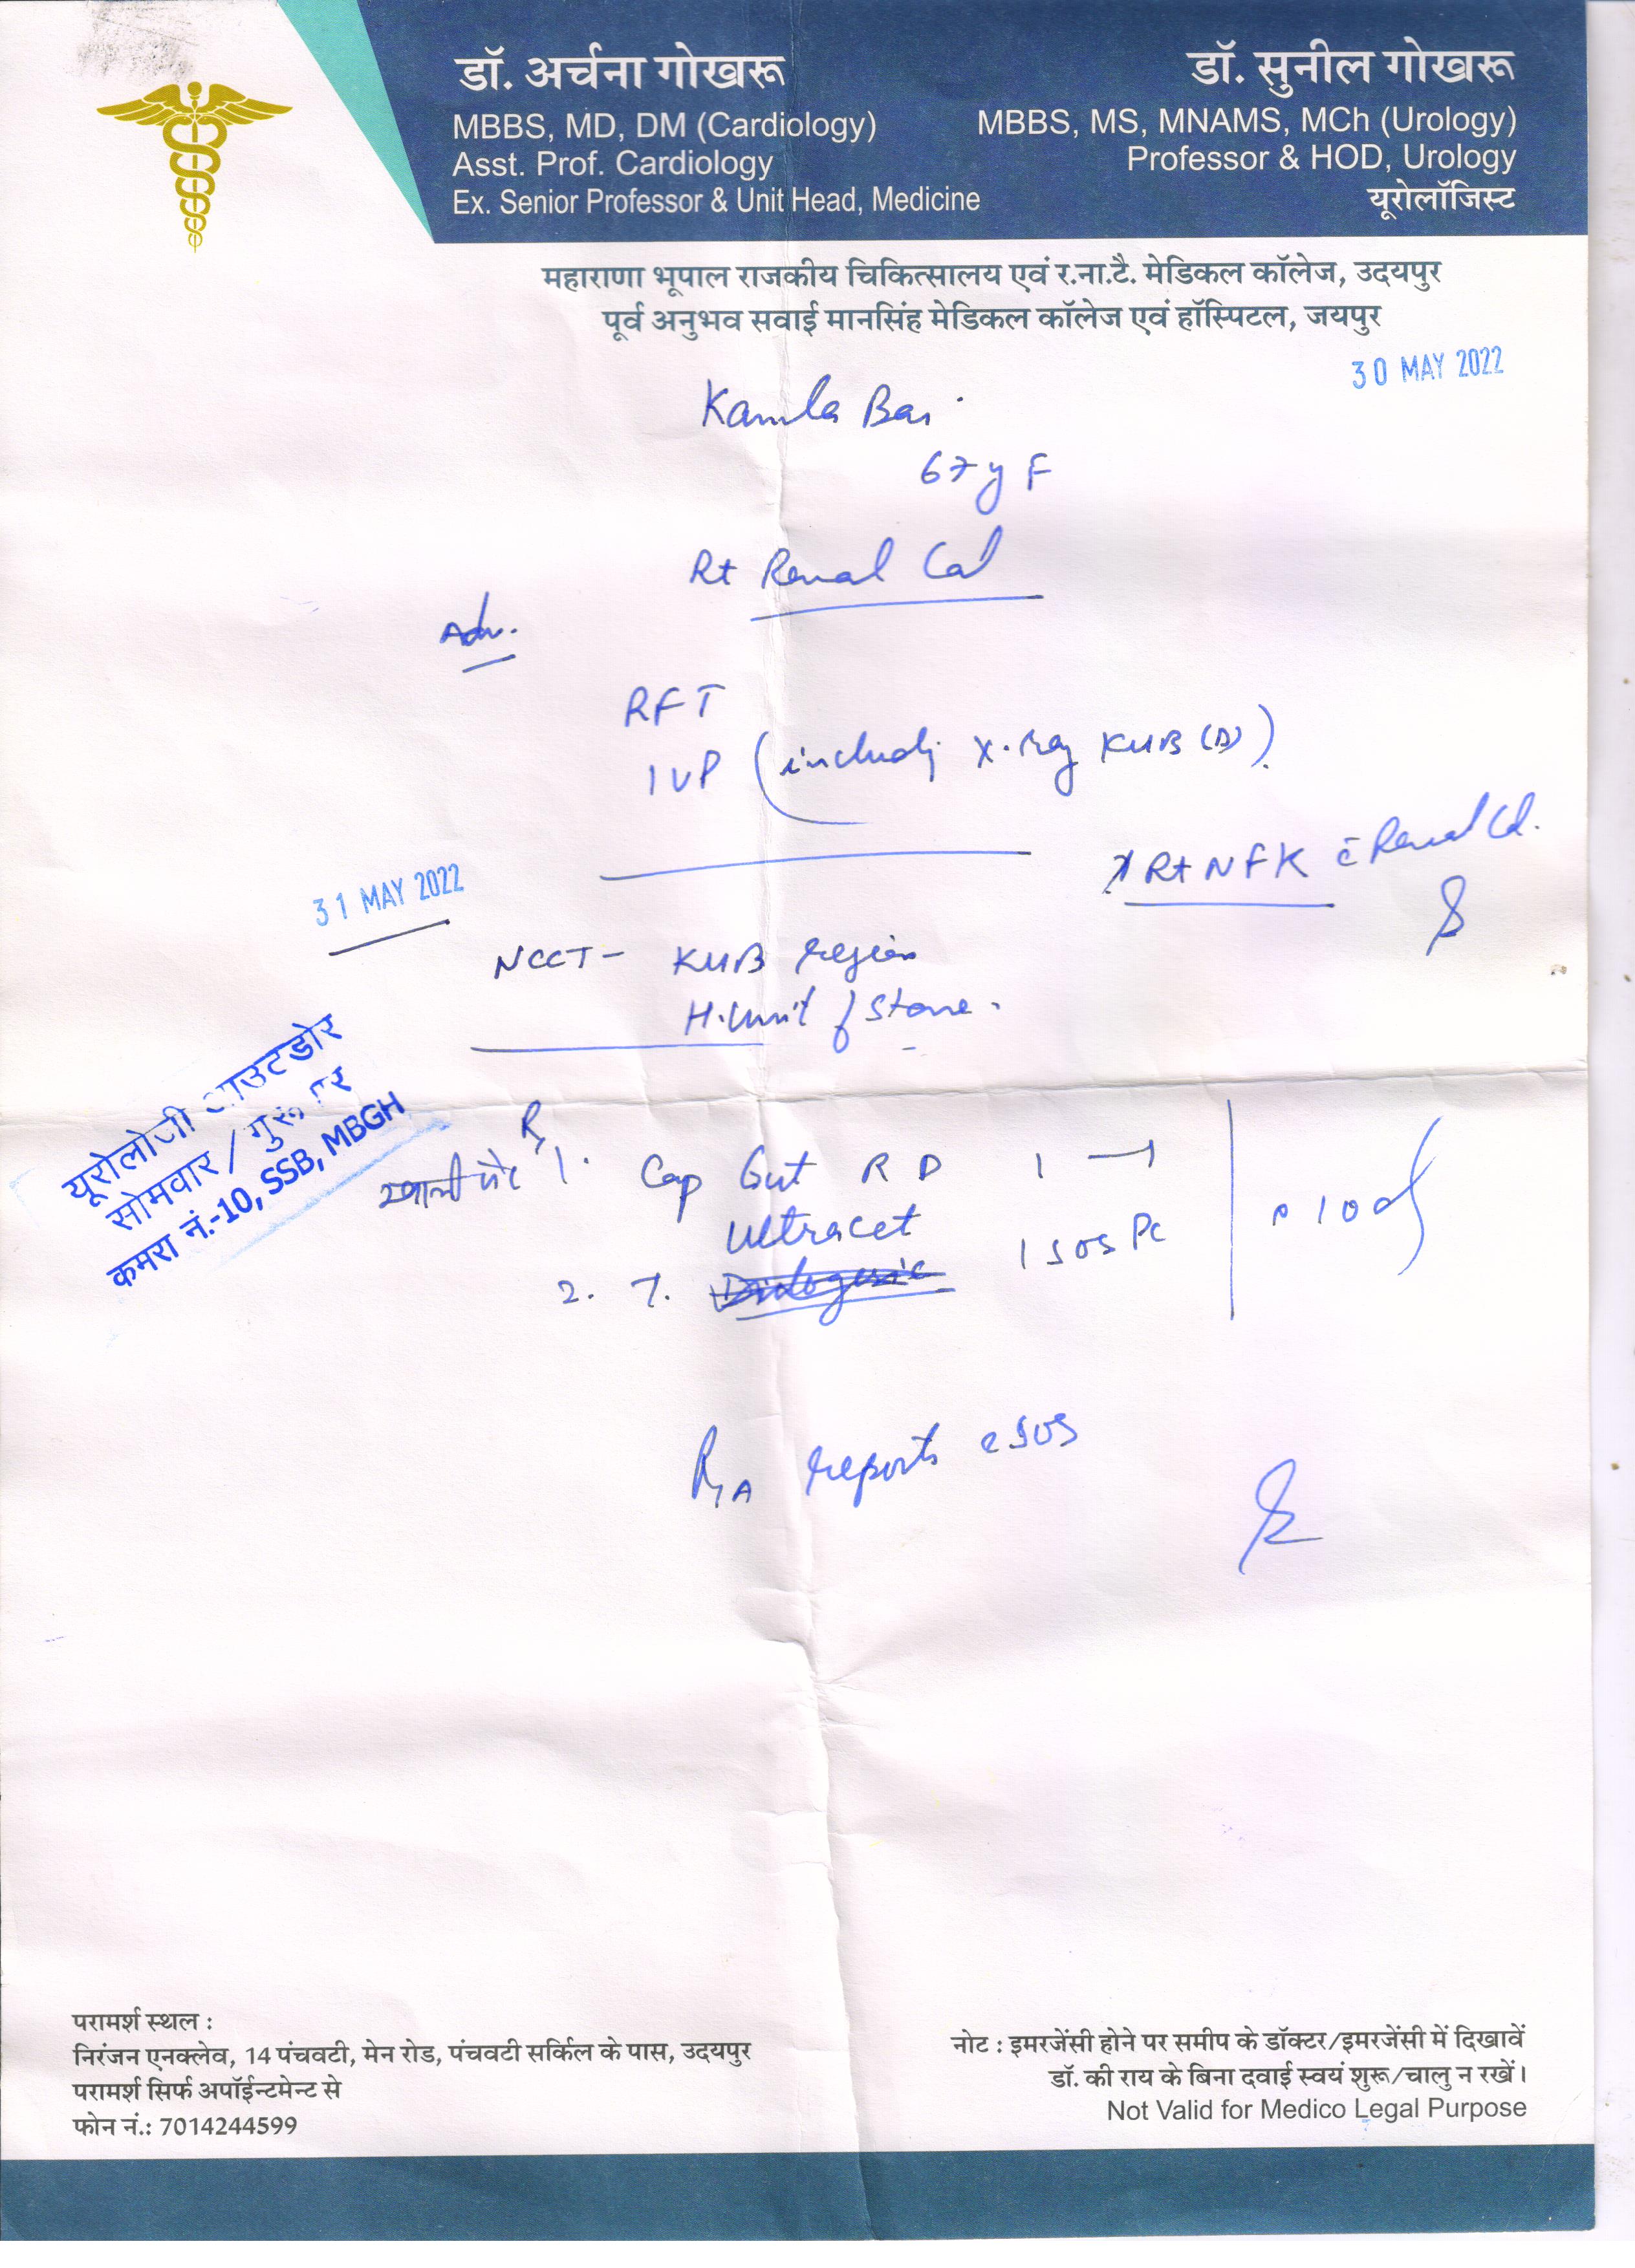 डॉ. अर्चना गोखरू
MBBS, MD, DM (Cardiology)
Asst. Prof. Cardiology
Ex. Senior Professor & Unit Head, Medicine
डॉ. सुनील गोखरू
MBBS, MS, MNAMS, MCh (Urology)
Professor & HOD, Urology
यूरोलॉजिस्ट
महाराणा भूपाल राजकीय चिकित्सालय एवं र.ना.टै. मेडिकल कॉलेज, उदयपुर
पूर्व अनुभव सवाई मानसिंह मेडिकल कॉलेज एवं हॉस्पिटल, जयपुर
30 MAY 2022
Kamla Bai
67 y F
Rt Renal Cal
Adv.
RFT
IVP (includj X-Ray KUB (D))
Rt NFK c̄ Renal Cal.
31 MAY 2022
NCCT - KUB region
H.Unit of Stone.
यूरोलोजी आउटडोर
सोमवार / गुरूवार
कमरा नं.-10, SSB, MBGH
Rx
खाली पेट 1. Cap Gut R D 1 —
Ultracet
2. T. 1 SOS PC
10 d
R/A reports c SOS
परामर्श स्थल :
निरंजन एनक्लेव, 14 पंचवटी, मेन रोड, पंचवटी सर्किल के पास, उदयपुर
परामर्श सिर्फ अपॉईन्टमेन्ट से
फोन नं.: 7014244599
नोट : इमरजेंसी होने पर समीप के डॉक्टर/इमरजेंसी में दिखावें
डॉ. की राय के बिना दवाई स्वयं शुरू/चालु न रखें।
Not Valid for Medico Legal Purpose